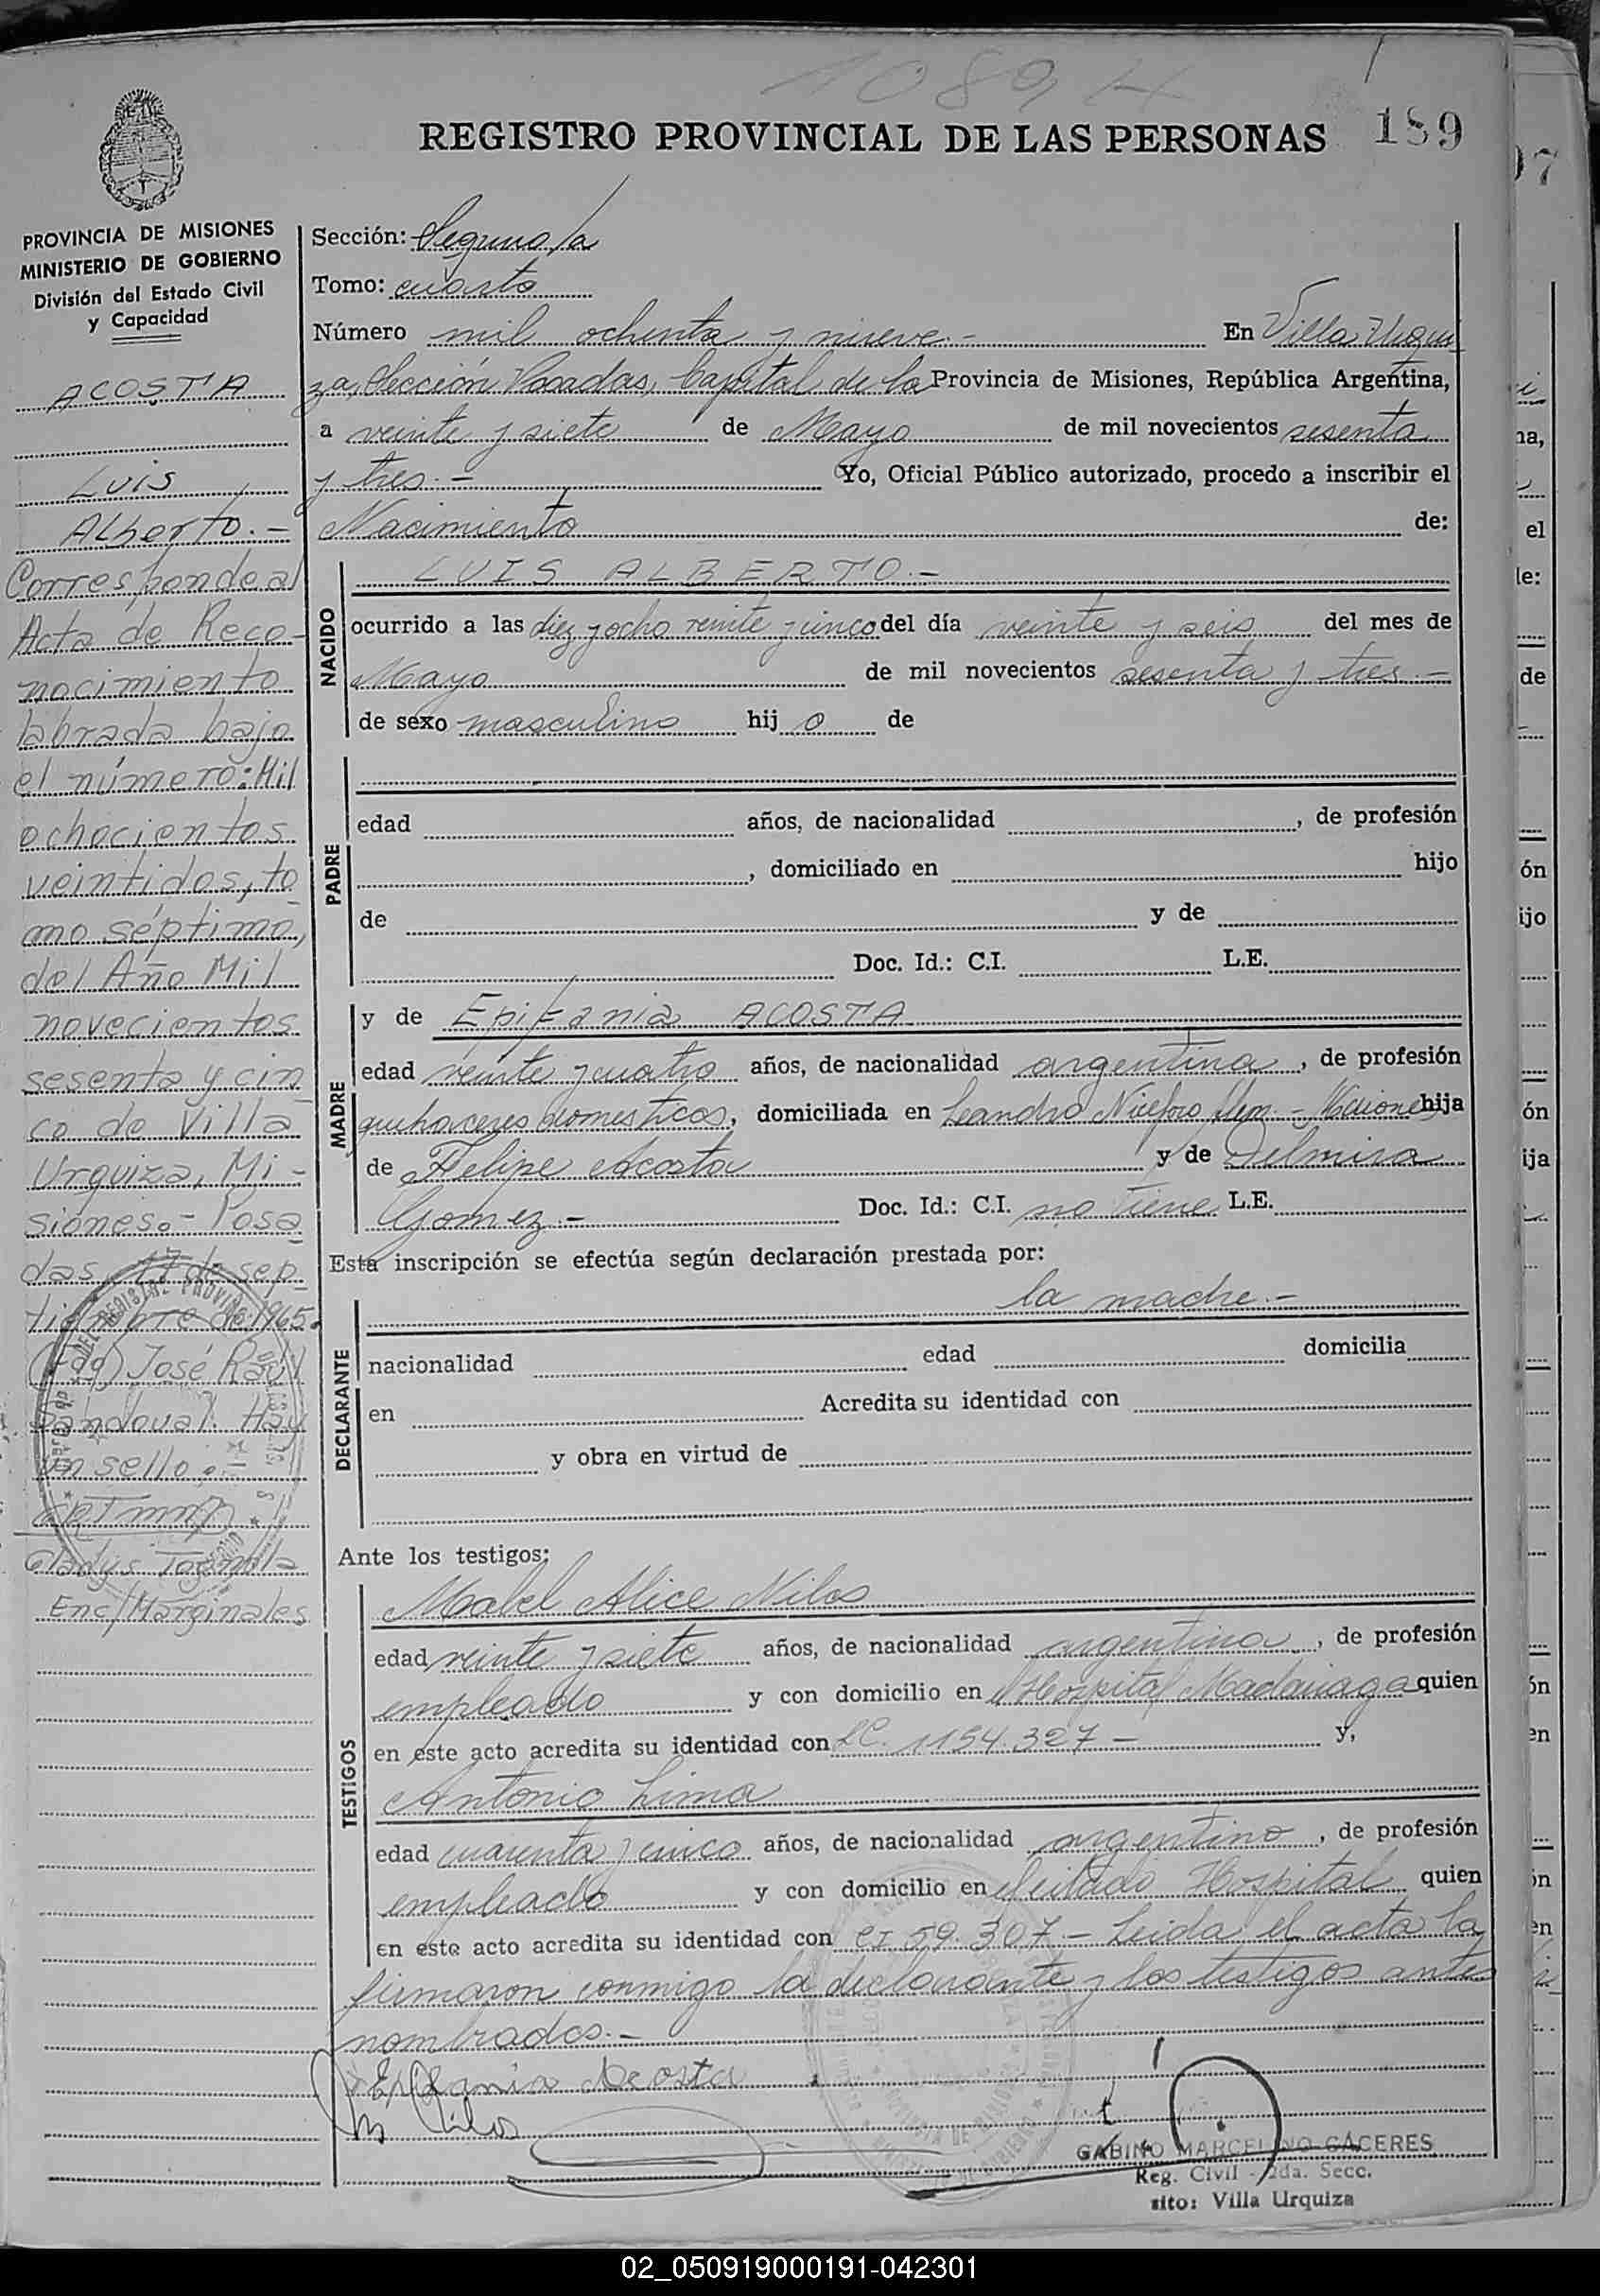 1089
189
REGISTRO PROVINCIAL DE LAS PERSONAS
97
PROVINCIA DE MISIONES
MINISTERIO DE GOBIERNO
División del Estado Civil
y Capacidad
ACOSTA
Luis
Alberto.-
Corresponde al
Acta de Reco-
nocimiento
labrada bajo
el número: Mil
ochocientos
veintidos, to
mo séptimo,
del Año Mil
novecientos
sesenta y cin
co de Villa
Urquiza, Mi-
siones.- Posa
das, 17 de sep
tiembre de 1965.
(Fdo) José Raúl
Sandoval. Hay
un sello.
Gladys
Enc/Marginales
Sección: Segunda
Tomo: cuarto
Número mil ochenta y nueve.- En Villa Urqui
za, Sección Posadas, Capital de la Provincia de Misiones, República Argentina,
a veinte y siete de Mayo de mil novecientos sesenta
y tres.- Yo, Oficial Público autorizado, procedo a inscribir el
Nacimiento de:
NACIDO
LUIS ALBERTO.-
ocurrido a las diez y ocho veinte y cinco del día veinte y seis del mes de
Mayo de mil novecientos sesenta y tres.-
de sexo masculino hij o de
PADRE
edad años, de nacionalidad , de profesión
, domiciliado en hijo
de y de
Doc. Id.: C.I. L.E.
MADRE
y de Epifania ACOSTA
edad veinte y cuatro años, de nacionalidad argentina, de profesión
quehaceres domesticos, domiciliada en Leandro Niceforo Alem.- Misiones hija
de Felipe Acosta y de Delmira
Gomez.- Doc. Id.: C.I. no tiene L.E.
Esta inscripción se efectúa según declaración prestada por:
DECLARANTE
la madre.-
nacionalidad edad domicilia
en Acredita su identidad con
y obra en virtud de
Ante los testigos:
TESTIGOS
Mabel Alice Nilos
edad veinte y siete años, de nacionalidad argentina, de profesión
empleado y con domicilio en Hospital Madariaga quien
en este acto acredita su identidad con LC. 1154.327 - y,
Antonio Lima
edad cuarenta y cinco años, de nacionalidad argentino, de profesión
empleado y con domicilio en el citado Hospital quien
en este acto acredita su identidad con CI 59.307.- Leida el acta la
firmaron conmigo la declarante y los testigos antes
nombrados.-
Epifania Acosta
GABINO MARCELINO CÁCERES
Reg. Civil - 2da. Secc.
sito: Villa Urquiza
02_050919000191-042301